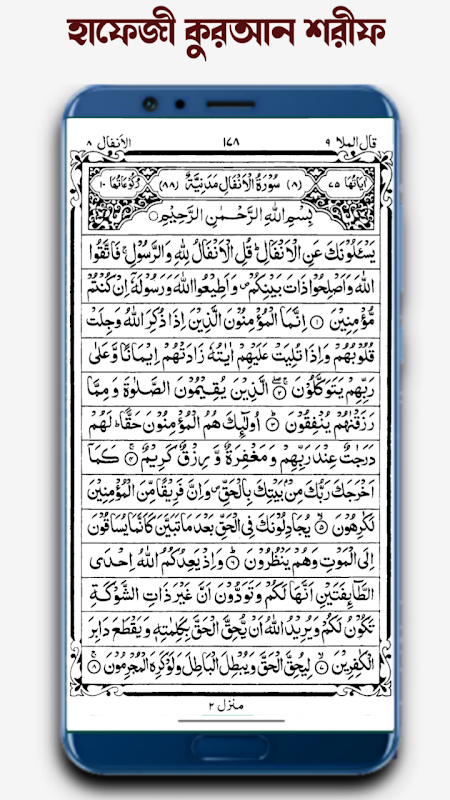 হাফেজী কুরআন শরীফ
قال الملا ٩ ١٧٨ الانفال ٨
اٰیَاتُهَا ٧٥ (٨) سُوْرَةُ الْاَنْفَالِ مَدَنِیَّةٌ (٨٨) رُكُوْعَاتُهَا ١٠
بِسْمِ اللّٰهِ الرَّحْمٰنِ الرَّحِیْمِ
یَسْـَٔلُوْنَكَ عَنِ الْاَنْفَالِ ؕ قُلِ الْاَنْفَالُ لِلّٰهِ وَالرَّسُوْلِ ۚ فَاتَّقُوا
اللّٰهَ وَاَصْلِحُوْا ذَاتَ بَیْنِكُمْ ۪ وَاَطِیْعُوا اللّٰهَ وَرَسُوْلَهٗۤ اِنْ كُنْتُمْ
مُّؤْمِنِیْنَ ۝١ اِنَّمَا الْمُؤْمِنُوْنَ الَّذِیْنَ اِذَا ذُكِرَ اللّٰهُ وَجِلَتْ
قُلُوْبُهُمْ وَاِذَا تُلِیَتْ عَلَیْهِمْ اٰیٰتُهٗ زَادَتْهُمْ اِیْمَانًا وَّعَلٰى
رَبِّهِمْ یَتَوَكَّلُوْنَ ۝٢ الَّذِیْنَ یُقِیْمُوْنَ الصَّلٰوةَ وَمِمَّا
رَزَقْنٰهُمْ یُنْفِقُوْنَ ۝٣ اُولٰٓئِكَ هُمُ الْمُؤْمِنُوْنَ حَقًّا ؕ لَهُمْ
دَرَجٰتٌ عِنْدَ رَبِّهِمْ وَمَغْفِرَةٌ وَّرِزْقٌ كَرِیْمٌ ۝٤ كَمَاۤ
اَخْرَجَكَ رَبُّكَ مِنْۢ بَیْتِكَ بِالْحَقِّ ۪ وَاِنَّ فَرِیْقًا مِّنَ الْمُؤْمِنِیْنَ
لَكٰرِهُوْنَ ۝٥ یُجَادِلُوْنَكَ فِی الْحَقِّ بَعْدَ مَا تَبَیَّنَ كَاَنَّمَا یُسَاقُوْنَ
اِلَى الْمَوْتِ وَهُمْ یَنْظُرُوْنَ ۝٦ وَاِذْ یَعِدُكُمُ اللّٰهُ اِحْدَى
الطَّآئِفَتَیْنِ اَنَّهَا لَكُمْ وَتَوَدُّوْنَ اَنَّ غَیْرَ ذَاتِ الشَّوْكَةِ
تَكُوْنُ لَكُمْ وَیُرِیْدُ اللّٰهُ اَنْ یُّحِقَّ الْحَقَّ بِكَلِمٰتِهٖ وَیَقْطَعَ دَابِرَ
الْكٰفِرِیْنَ ۝٧ لِیُحِقَّ الْحَقَّ وَیُبْطِلَ الْبَاطِلَ وَلَوْ كَرِهَ الْمُجْرِمُوْنَ ۝٨
منزل ٢